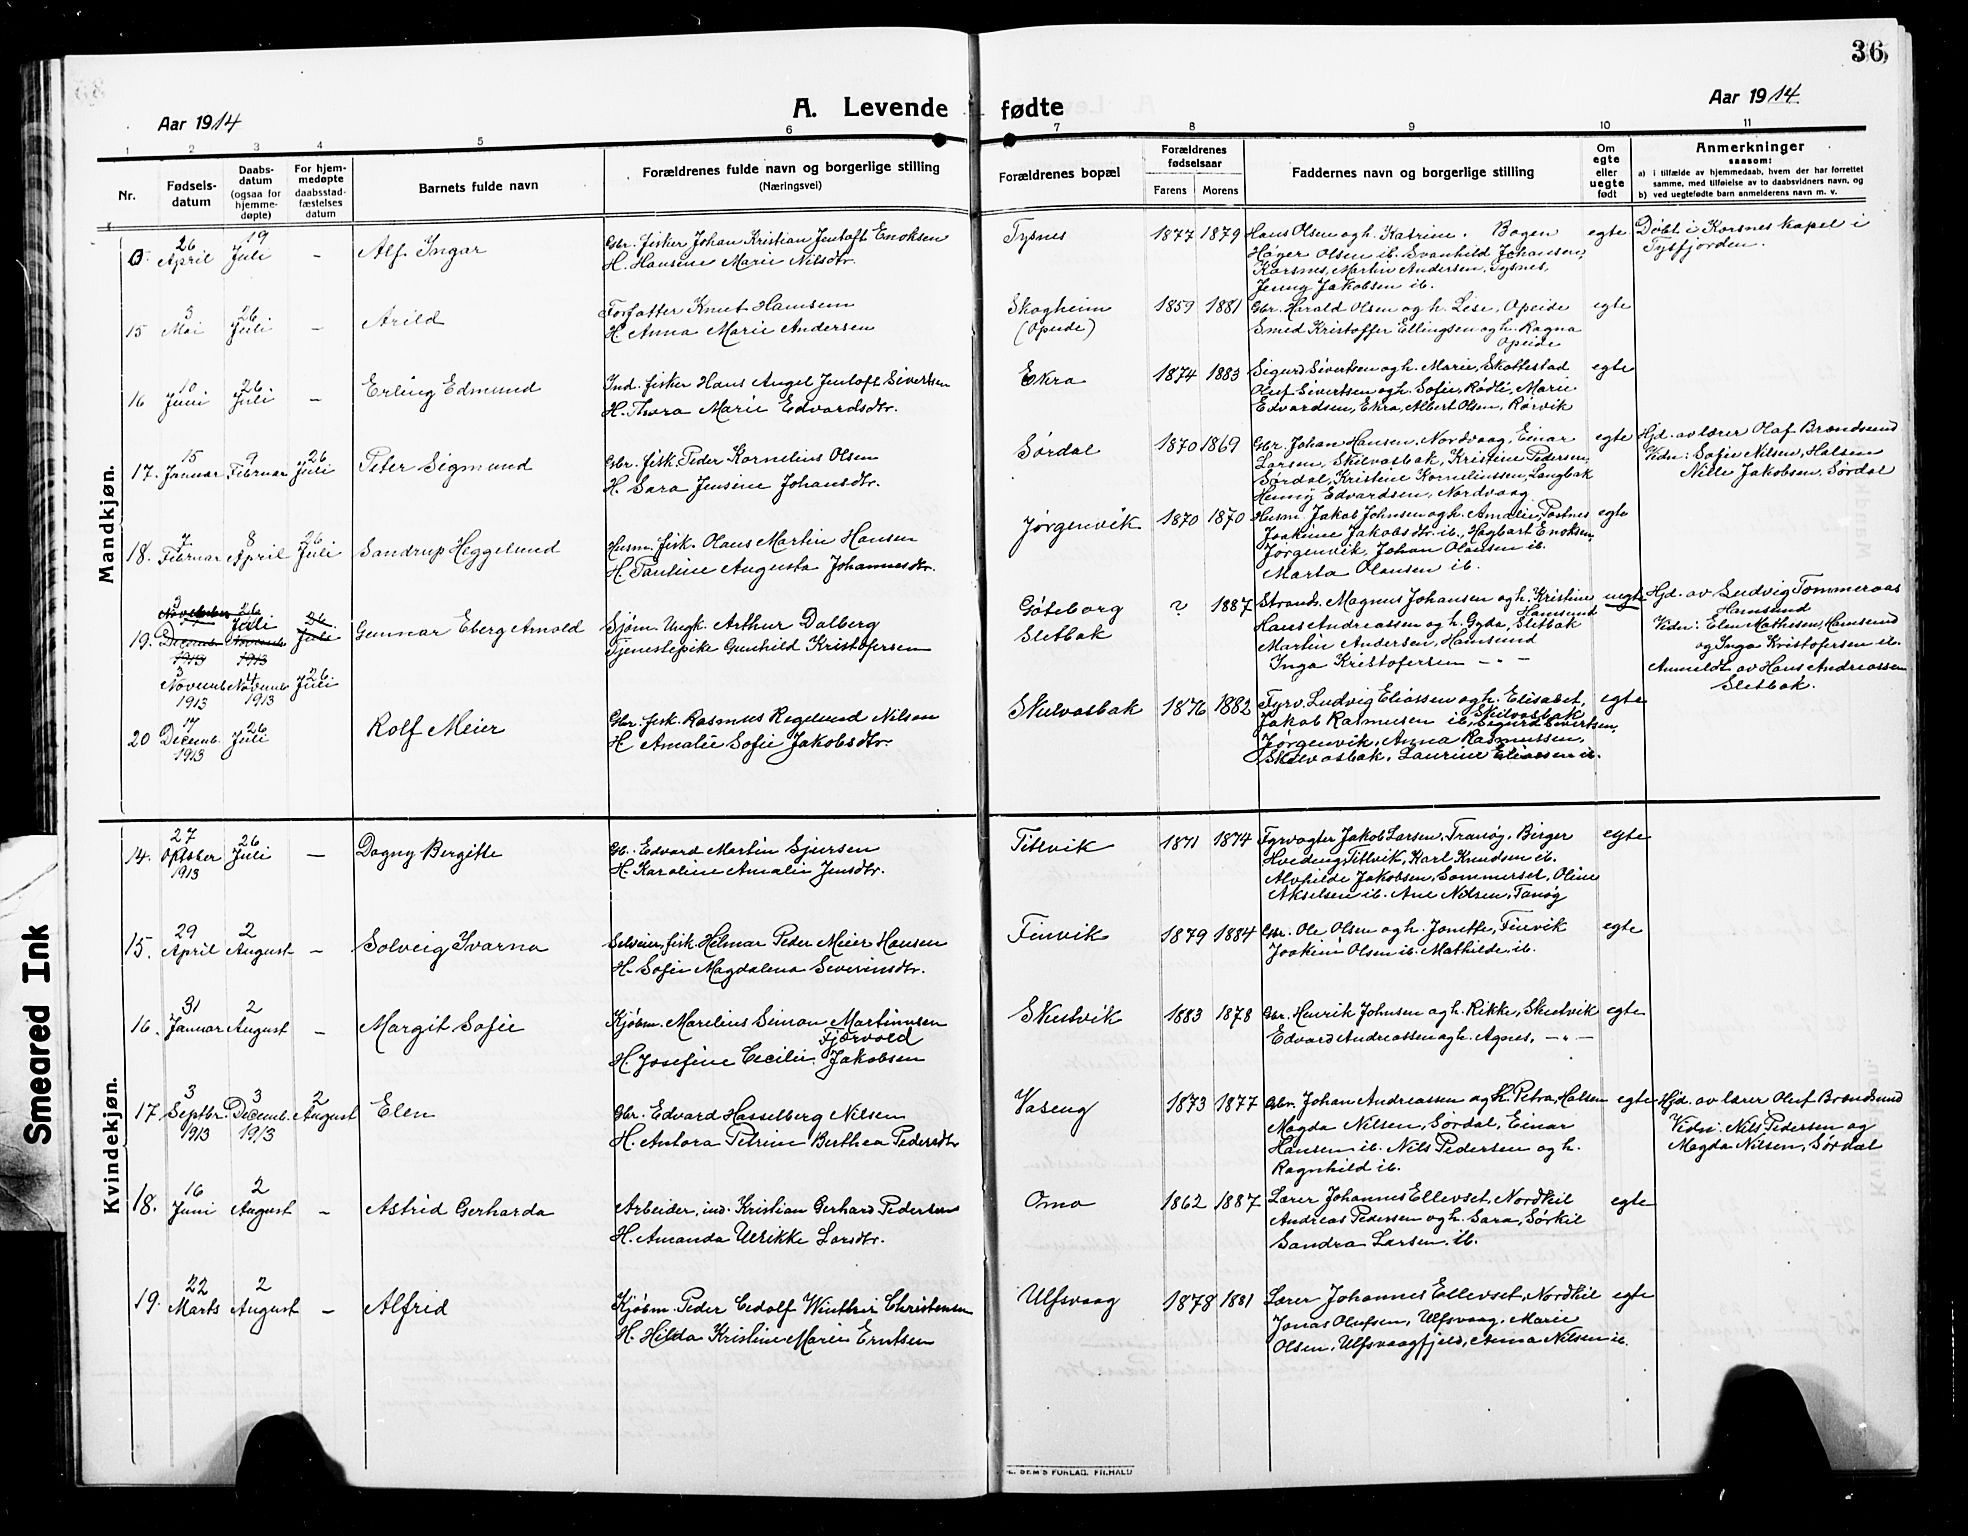 36
Aar 1914
A. Levende fødte
Aar 1914
1 2 3 4 5 6 7 8 9 10 11
Nr.
Fødsels-
datum
Daabs-
datum
(ogsaa for
hjemme-
døpte)
For hjem-
medøpte
daabsstad-
fæstelses
datum
Barnets fulde navn
Forældrenes fulde navn og borgerlige stilling
(Næringsvei)
Forældrenes bopæl
Forældrenes
fødselsaar
Farens Morens
Faddernes navn og borgerlige stilling
Om
egte
eller
uegte
født
Anmerkninger
saasom:
a) i tilfælde av hjemmedaab, hvem der har forrettet
samme, med tilføielse av to daabsvidners navn, og
b) ved uegtefødte barn anmelderens navn m. v.
Mandkjøn.
26 April
19 Juli
–
Alf Ingar
Gbr. fisker Johan Kristian Jentoft Enoksen
H. Hansine Marie Nilsdtr.
Tysnes
1877 1879
Hans Olsen og h. Katrine. Bogen
Høger Olsen ib. Svanhild Johansen,
Korsnes, Martin Andersen, Tysnes,
Jenny Jakobsen ib.
egte
Døbt i Korsnes kapel i
Tysfjorden.
15
3 Mai
26 Juli
–
Arild
Forfatter Knut Hamsun
H. Anna Marie Andersen
Skogheim
(Opeide)
1859 1881
Gbr. Harald Olsen og h. Lise, Opeide
Smed Kristoffer Ellingsen og h. Ragna
Opeide
egte
16
10 Juni
26 Juli
–
Erling Edmund
Ind. fisker Hans Angel Jentoft Sivertsen
H. Thora Marie Edvardsdtr.
Ekra
1874 1883
Sigurd Sivertsen og h. Marie, Skottestad
Oluf Sivertsen og h. Sofie, Rødli, Marie
Edvardsen, Ekra, Albert Olsen, Rørvik
egte
17.
15 Januar
9 Februar
26 Juli
Peter Sigmund
Gbr. fisk. Peder Kornelius Olsen
H. Sara Jensine Johansdtr.
Sørdal
1870 1869
Gbr. Johan Hansen, Nordvaag, Einar
Larsen, Skilvasbak, Kristine Pedersen,
Sørdal, Kristene Korneliussen, Langbak
Henny Edvardsen, Nordvaag
egte
Hjd. av lærer Olaf Brandsund
Vidn: Sofie Nilsen, Halsen
Nille Jakobsen, Sørdal
18.
7 Februar
8 April
26 Juli
Sandrup Heggelund
Husm. fisk. Olaus Martin Hansen
H. Pauline Augusta Johannesdtr.
Jørgenvik
1870 1870
Husm Jakob Johnsen og h. Amalie,
Joakine Jakobsdtr. ib., Hagbart Enoksen,
Jørgenvik, Johan Olausen ib.
Marta Olausen ib.
egte
19.
3 November
Decemb. 1913
26 Juli
Novemb. 1913
26 Juli
3 Novemb. 1913
4 Novemb. 1913
26. Juli
Gunnar Eberg Arnold
Sjøm. Ungk. Arthur Dalberg
Tjenestepike Gunhild Kristofersen
Göteborg
Sletbak
? 1887
Strands. Magnus Johansen og h. Kristine
Hamsund
Hans Andreassen og h. Gyda, Sletbak
Martin Andersen, Hamsund
Inga Kristofersen – " –
uegte
Hjd. av Ludvig Tommeraas
Hamsund
Vidn: Elen Mathisen, Hamsund
og Inga Kristofersen ib.
Anmeldt av Hans Andreassen
Sletbak.
20
17 Decemb. 1913
26 Juli
Rolf Meier
Gbr. fisk. Rasmus Regelund Nilsen
H. Amalie Sofie Jakobsdtr.
Skilvasbak
1876 1882
Fyrv. Ludvig Eliassen og h. Elisabet,
Skilvasbak
Jakob Rasmusen ib, Sigurd Sivertsen,
Jørgenvik, Anna Rasmussen,
Skilvasbak, Laurine Eliassen ib.
egte
Kvindekjøn.
14.
27 Oktober 1913
26 Juli
–
Dagny Bergitte
Gb. Edvard Martin Sjursen
H. Karoline Amalie Jensdtr.
Titlvik
1871 1874
Fyrvogter Jakob Larsen, Tranøg, Birger
Hveding, Titlvik, Karl Knudsen ib.
Alvhilde Jakobsen, Sommerset, Oline
Akselsen ib. Ane Nilsen, Tanøg
egte
15.
29 April
2 August
–
Solveig Ivarna
Selveier, fisk. Helmar Peder Meier Hansen
H. Sofie Magdalena Severinsdtr.
Finvik
1879 1884
Gbr. Ole Olsen og h. Jonette, Finvik
Joakim Olsen ib. Mathilde, ib.
egte
16.
31 Januar
2 August
–
Margit Sofie
Kjøbm. Marelius Simon Martinusen
Fjærvold
H. Josefine Cecilie Jakobsen
Skutvik
1883 1878
Gbr. Henrik Johnsen og h. Rikke, Skutvik
Edvard Andreassen og h. Agnes, – " –
egte
17
3 Septbr. 1913
3 Decemb. 1913
2 August
Elen
Gbr. Edvard Hasselberg Nilsen
H. Antora Petrine Berthea Pedersdtr
Vaseng
1873 1877
Gbr. Johan Andreassen og h. Petra, Halsen
Magda Nilsen, Sørdal, Einar
Hansen ib. Nils Pedersen og h.
Ragnhild ib.
egte
Hjd. av lærer Oluf Brandsund
Vidn: Nils Pedersen og
Magda Nilsen, Sørdal
18.
16 Juni
2 August
–
Astrid Gerharda
Arbeider, ind. Kristian Gerhard Pedersen
H. Amanda Ulrikke Larsdtr.
Omo
1862 1887
Lærer Johannes Ellevset, Nordkil
Andreas Pedersen og h. Sara, Sørkil
Sandra Larsen, ib.
egte
19.
22 Marts
2 August
–
Alfrid
Kjøbm. Peder Cedolf Winther Christensen
H. Hilda Kristine Marie Erntsen
Ulfsvaag
1878 1881
Lærer Johannes Ellevset, Nordkil
Jonas Olufsen, Ulfsvaag, Marie
Olsen, Ulfsvaagfjeld, Anna Nilsen ib.
egte
Smeared Ink
SEM'S FORLAG. FR.HALD